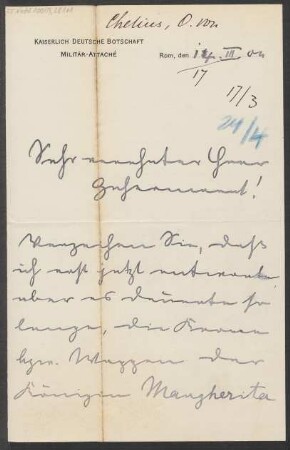 Chelius, O. von
KAISERLICH DEUTSCHE BOTSCHAFT
MILITÄR-ATTACHÉ
Rom, den
17
17/3
24/4
Sehr verehrter Herr
Geheimerat!
Verzeihen Sie, daß
ich erst jetzt antworte
aber es dauerte so
lange, die Krone
bzw. Wappen der
Königin Margherita